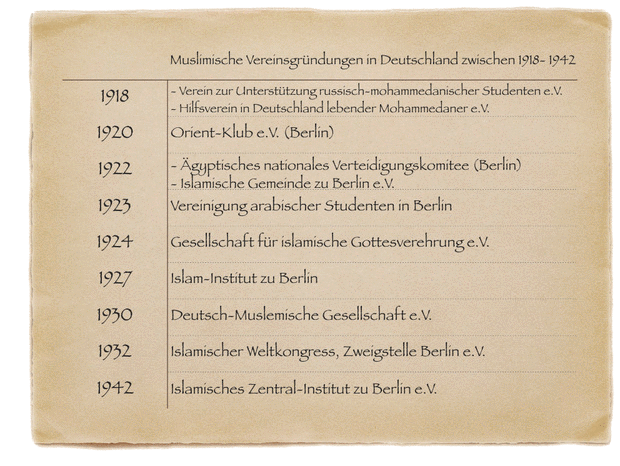 Muslimische Vereinsgründungen in Deutschland zwischen 1918- 1942
1918
- Verein zur Unterstützung russisch-mohammedanischer Studenten e.V.
- Hilfsverein in Deutschland lebender Mohammedaner e.V.
1920
Orient-Klub e.V. (Berlin)
1922
- Ägyptisches nationales Verteidigungskomitee (Berlin)
- Islamische Gemeinde zu Berlin e.V.
1923
Vereinigung arabischer Studenten in Berlin
1924
Gesellschaft für islamische Gottesverehrung e.V.
1927
Islam-Institut zu Berlin
1930
Deutsch-Muslemische Gesellschaft e.V.
1932
Islamischer Weltkongress, Zweigstelle Berlin e.V.
1942
Islamisches Zentral-Institut zu Berlin e.V.